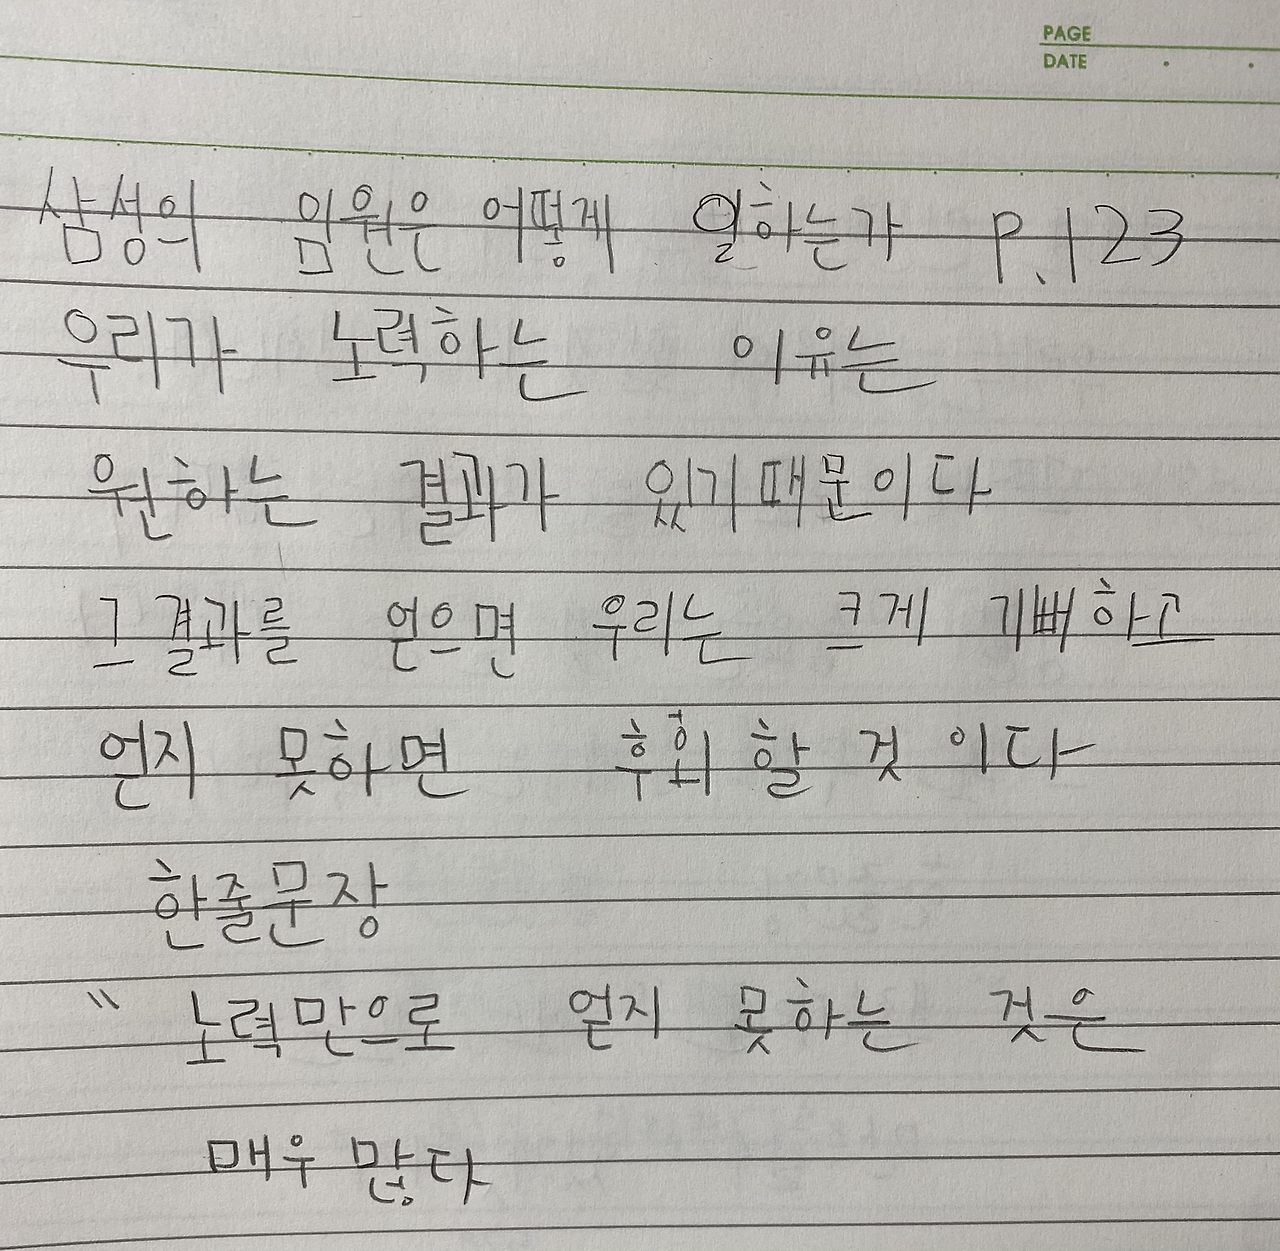 PAGE
DATE
삼성의 임원은 어떻게 일하는가 P.123
우리가 노력하는 이유는
원하는 결과가 있기때문이다
그 결과를 얻으면 우리는 크게 기뻐하고
얻지 못하면 후회 할 것 이다
한줄문장
" 노력만으로 얻지 못하는 것은
매우 많다